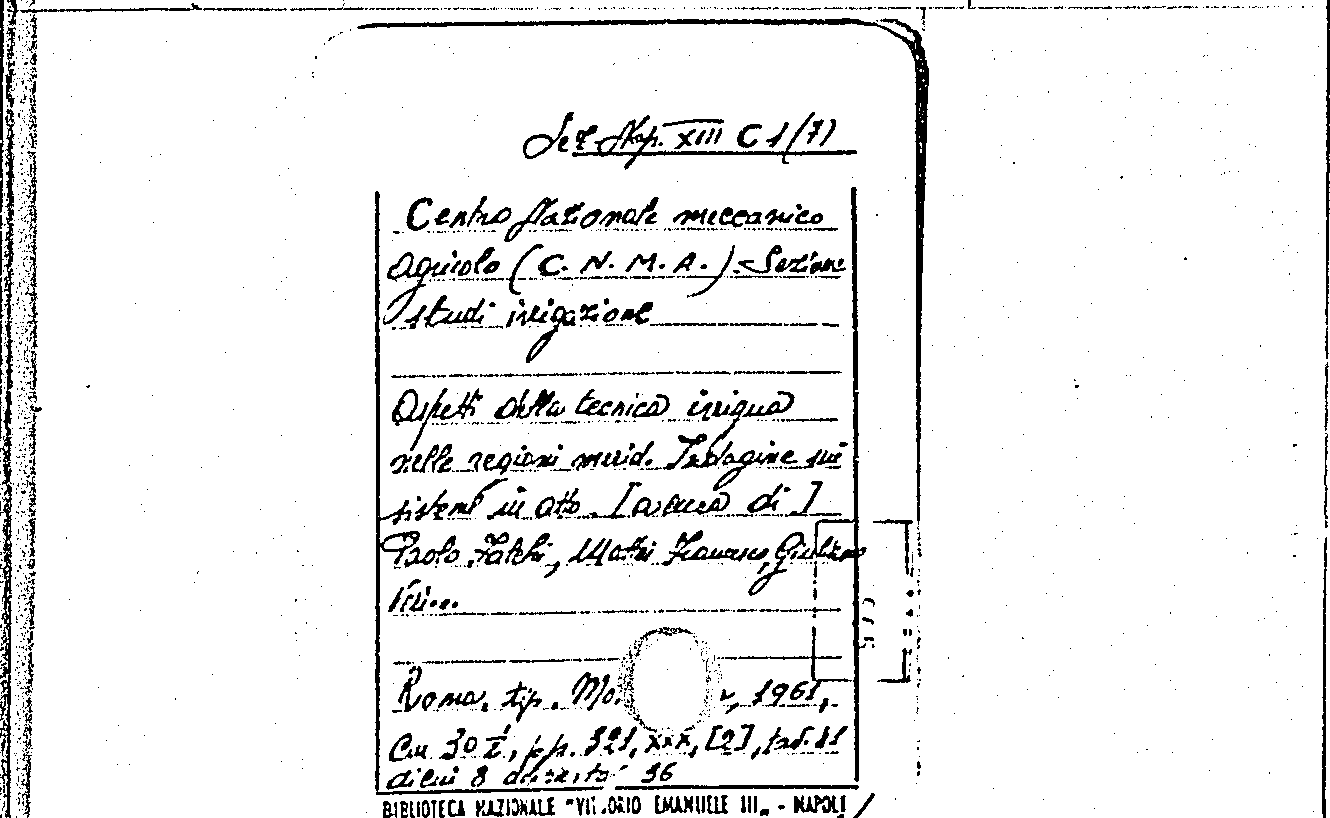 Sez. Nap. XIII C 1/(7)
Centro Nazionale meccanico
Agricolo (C. N. M. A.) - Sezione
studi irrigazione
Aspetti della tecnica irrigua
nelle regioni merid. Indagine sui
sistemi in atto. [a cura di]
Paolo Falchi, Francesco, Giuliano
Roma, tip. 1961,
Cm 30 ½, pp. 321, xxx, [2], tav. 11
di cui 8
BIBLIOTECA NAZIONALE "VITTORIO EMANUELE III" - NAPOLI